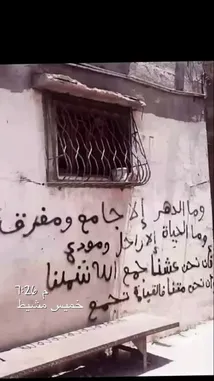 وما الدهر إلا جامع ومفرق
وما الحياة إلا راحل ومودع
فإن نحن عشنا جمع الله شملنا
وإن نحن متنا فالقيامة تجمع
7:26 م
خميس مشيط